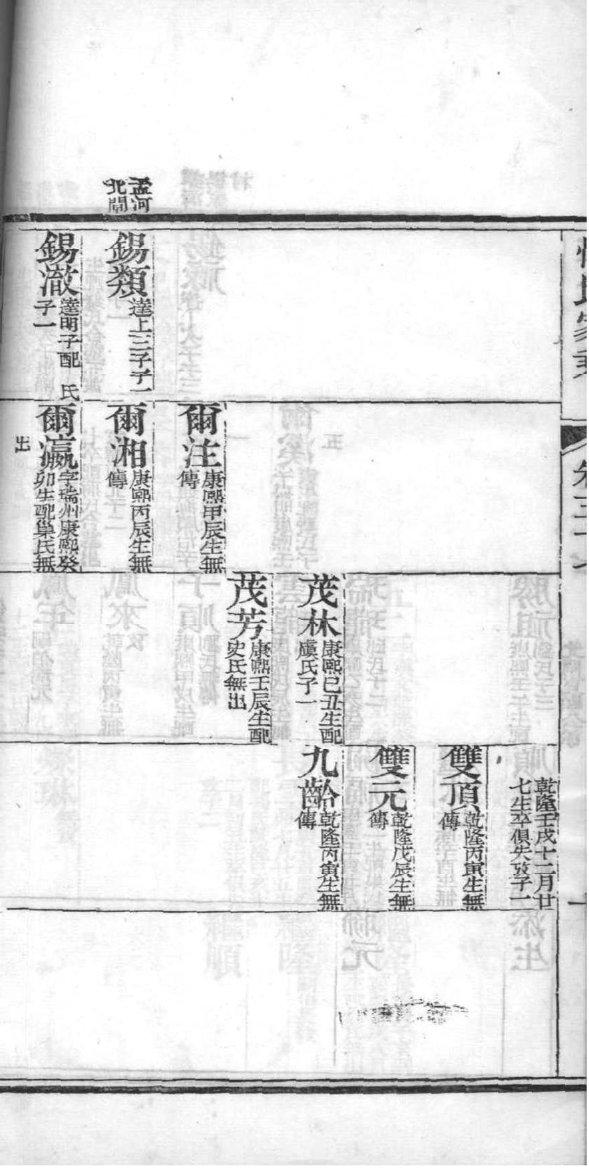 孟河
北閘
錫類
達上三子子一
錫澂
達明子配　氏
子一
爾注
康熙甲辰生無
傳
爾湘
康熙丙辰生無
傳
爾瀛
字瑞州康熙癸
卯生配巢氏無
出
茂林
康熙己丑生配
虞氏子一
茂芳
康熙壬辰生配
史氏無出
乾隆壬戌十二月廿
七生卒俱失攷子一
雙頂
乾隆丙寅生無
傳
雙元
乾隆戊辰生無
傳
九齡
乾隆丙寅生無
傳